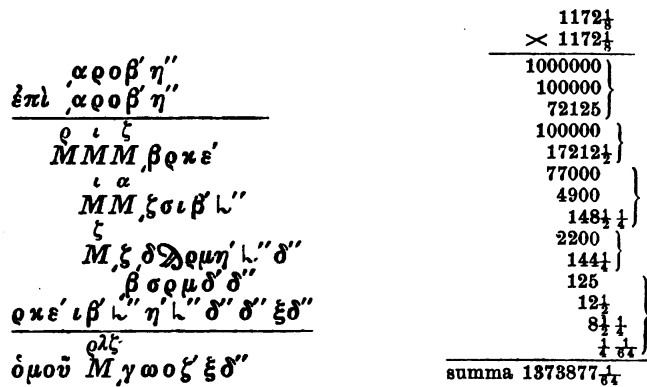 ͵αροβ′ η″
ἐπὶ ͵αροβ′ η″
ρ ι ζ
ΜΜΜ͵βρκε′
ι α
ΜΜ͵ζσιβ′ 𐅵″
ζ
Μ͵ζ͵δϡρμη′ 𐅵″ δ″
͵β′σρμδ′ δ″
ρκε′ ιβ′ 𐅵″ η′ 𐅵″ δ″ δ″ ξδ″
ρλζ
ὁμοῦ Μ͵γωοζ′ ξδ″
1172⅛
× 1172⅛
1000000
100000
72125
100000
17212½
77000
4900
148½ ¼
2200
144¼
125
12½
8½ ¼
¼ 1/64
summa 1373877 1/64